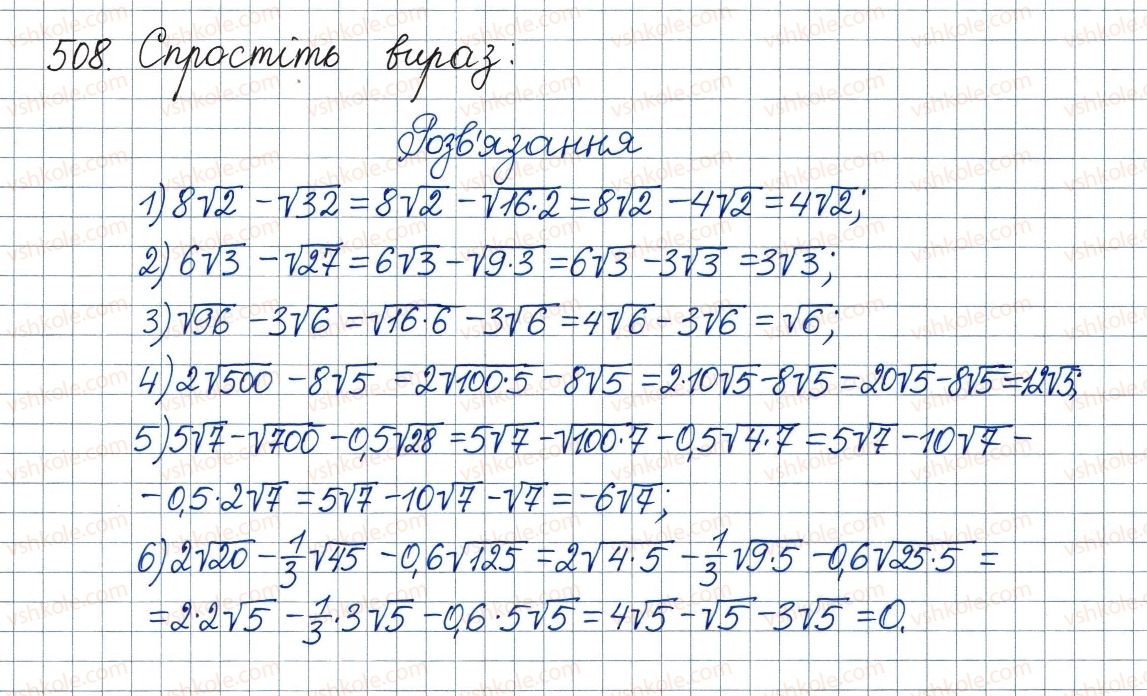 508. Спростіть вираз:
Розв'язання
1) 8√2 - √32 = 8√2 - √16·2 = 8√2 - 4√2 = 4√2;
2) 6√3 - √27 = 6√3 - √9·3 = 6√3 - 3√3 = 3√3;
3) √96 - 3√6 = √16·6 - 3√6 = 4√6 - 3√6 = √6;
4) 2√500 - 8√5 = 2√100·5 - 8√5 = 2·10√5 - 8√5 = 20√5 - 8√5 = 12√5;
5) 5√7 - √700 - 0,5√28 = 5√7 - √100·7 - 0,5√4·7 = 5√7 - 10√7 -
- 0,5·2√7 = 5√7 - 10√7 - √7 = -6√7;
6) 2√20 - 1/3√45 - 0,6√125 = 2√4·5 - 1/3√9·5 - 0,6√25·5 =
= 2·2√5 - 1/3·3√5 - 0,6·5√5 = 4√5 - √5 - 3√5 = 0.